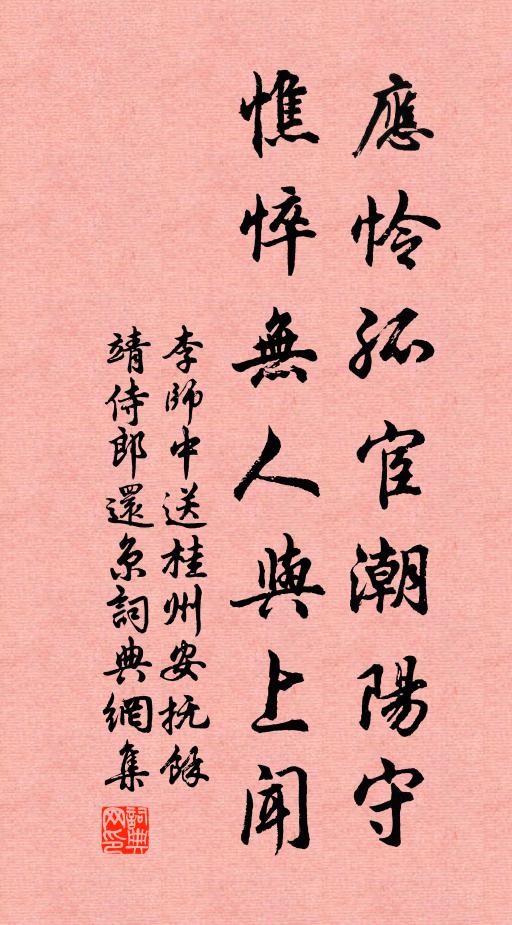 應怜孤宦潮陽守
憔悴無人與上聞
李師中送桂州安抚餘
靖侍郎還京詞典網集
詞典
网印